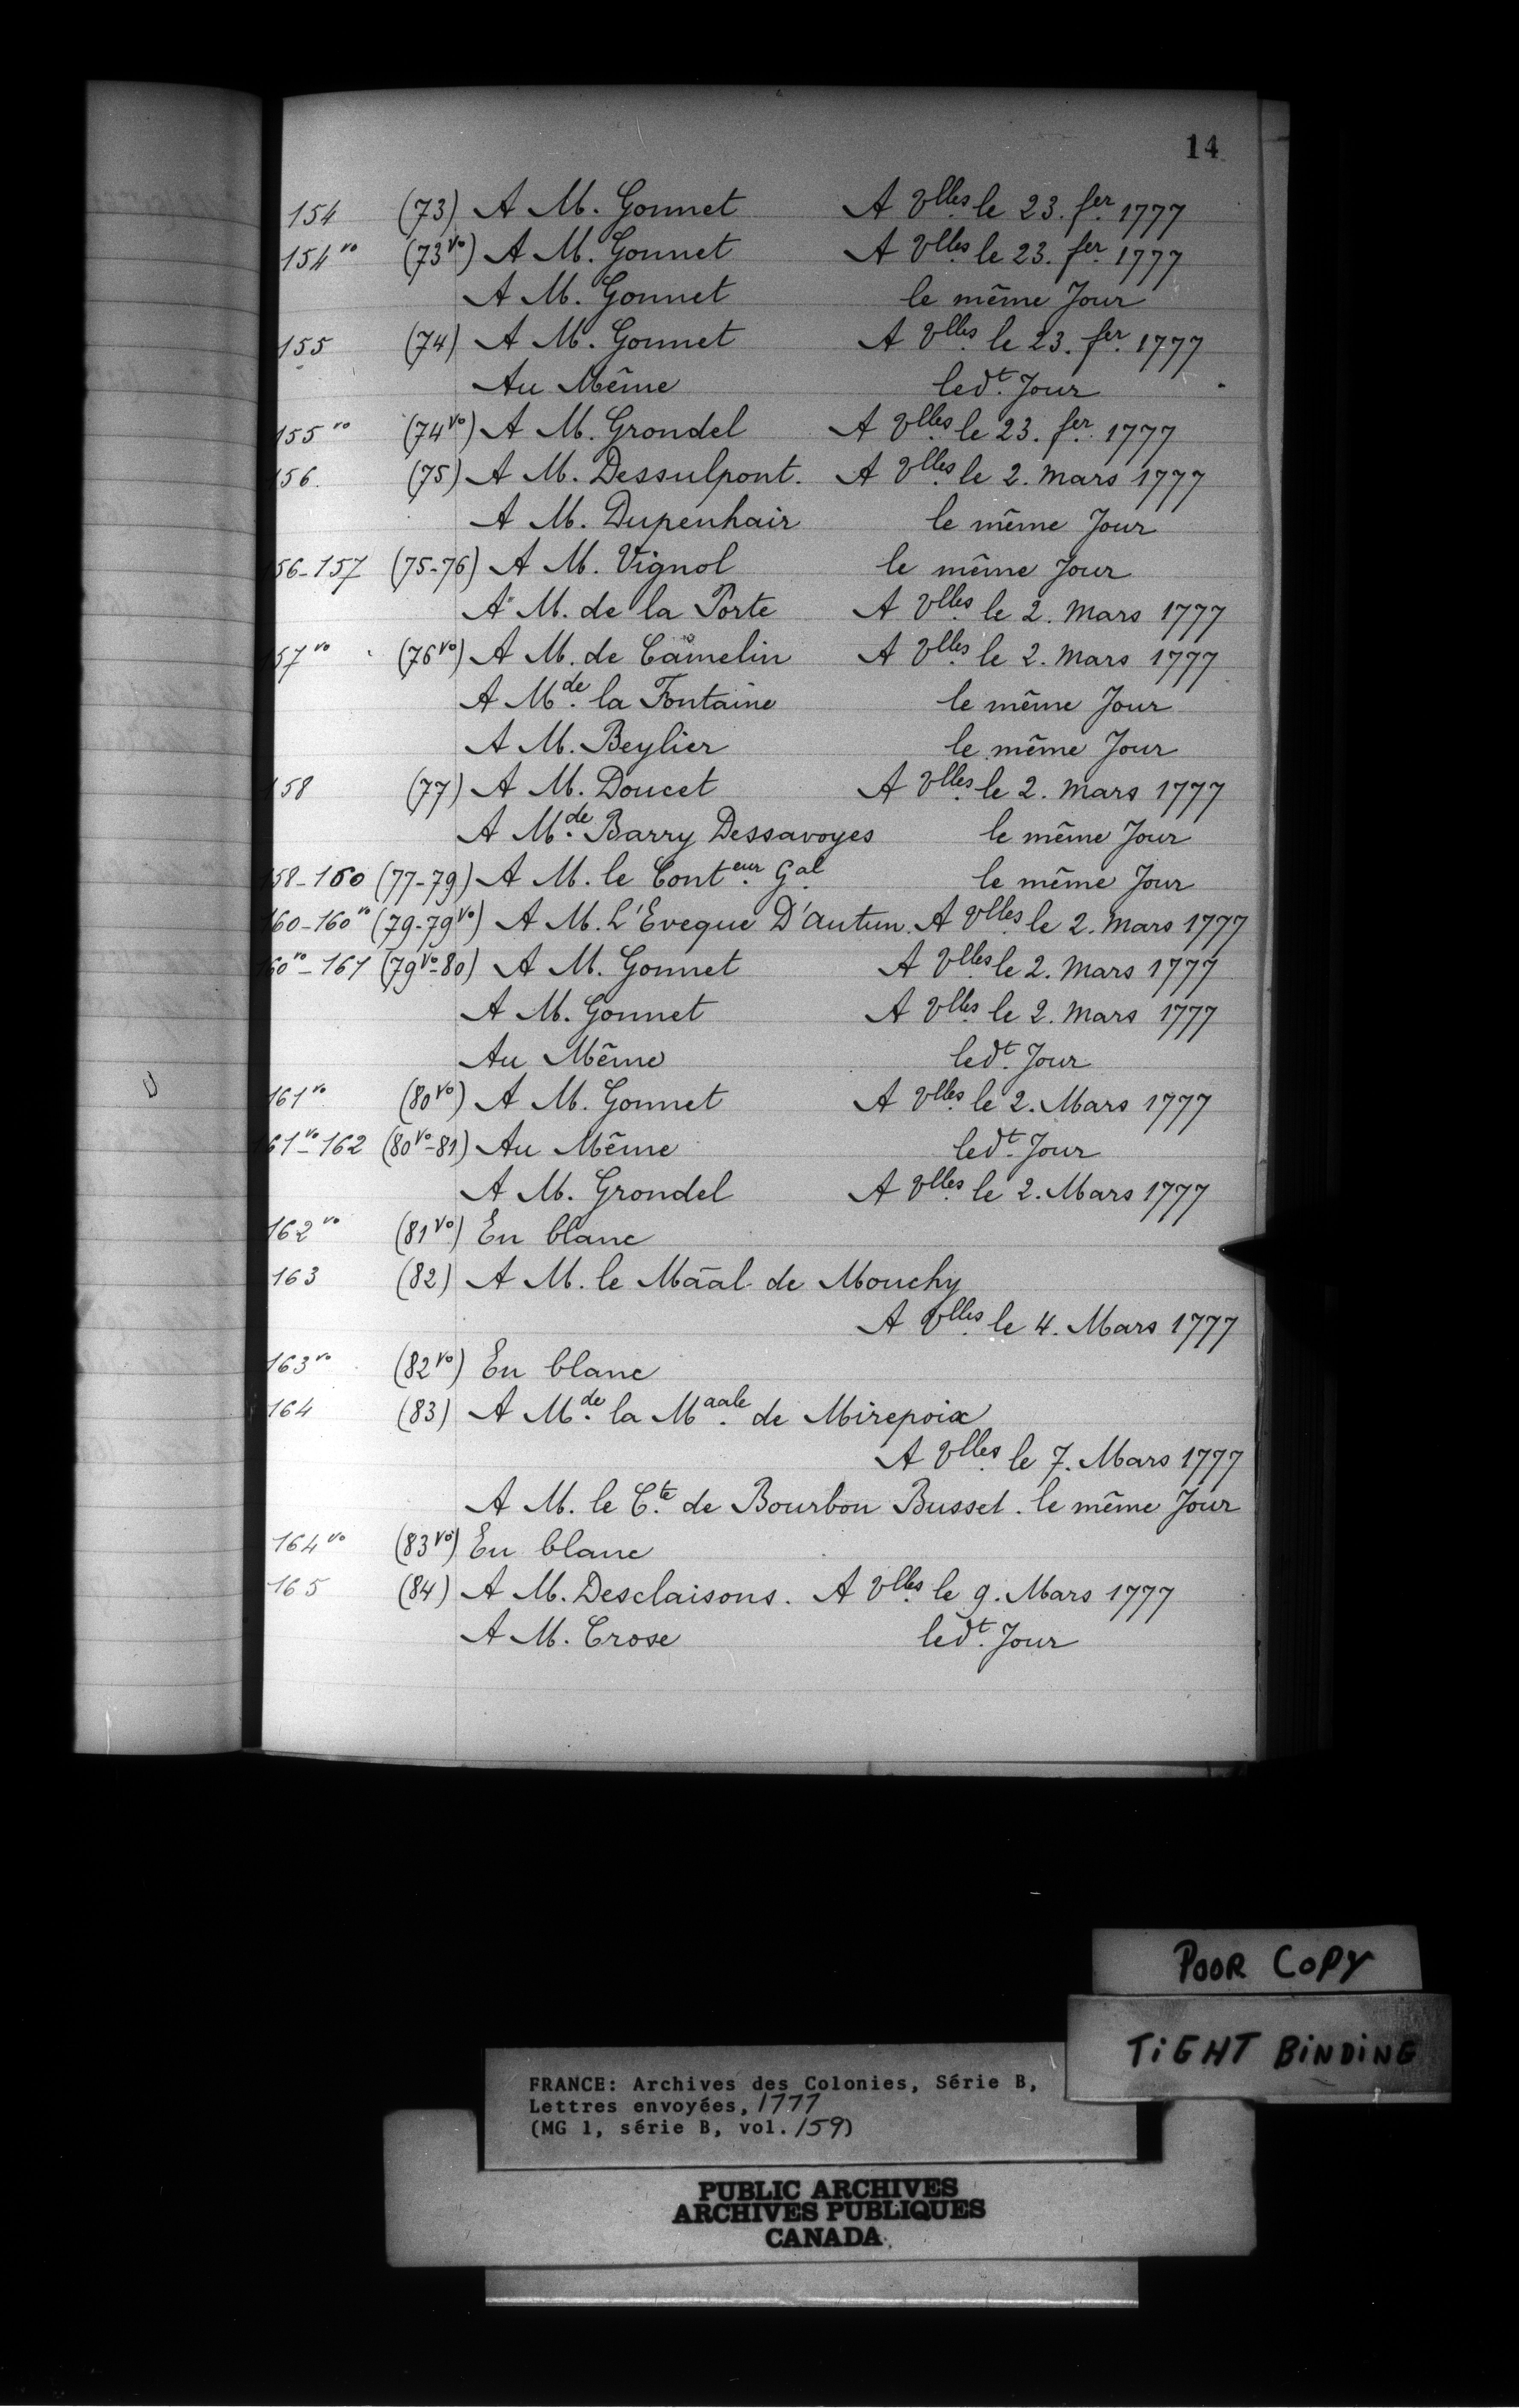 14
154 (73) A M. Gonnet A Vlles le 23. fer. 1777
154 vo (73 vo) A M. Gonnet A Vlles le 23. fer. 1777
A M. Gonnet le même Jour
155 (74) A M. Gonnet A Vlles le 23. fer. 1777
Au Même ledt. Jour
155 vo (74 vo) A M. Grondel A Vlles le 23. fer. 1777
156. (75) A M. Dessulpont. A Vlles le 2. Mars 1777
A M. Dupenhair le même Jour
56-157 (75-76) A M. Vignol le même Jour
A M. de la Porte A Vlles le 2. Mars 1777
57 vo (76 vo) A M. de Camelin A Vlles le 2. Mars 1777
A Mde. la Fontaine le même Jour
A M. Beylier le même Jour
58 (77) A M. Doucet A Vlles le 2. Mars 1777
A Mde. Barry Dessavoyes le même Jour
58-160 (77-79) A M. le Conteur. Gal. le même Jour
160-160 vo (79-79 vo) A M. L'Eveque D'autun. A Vlles le 2. Mars 1777
60 vo-161 (79 vo-80) A M. Gonnet A Vlles le 2. Mars 1777
A M. Gonnet A Vlles le 2. Mars 1777
Au Même ledt. Jour
161 vo (80 vo) A M. Gonnet A Vlles le 2. Mars 1777
61 vo-162 (80 vo-81) Au Même ledt. Jour
A M. Grondel A Vlles le 2. Mars 1777
162 vo (81 vo) En blanc
163 (82) A M. le Māal de Mouchy
A Vlles le 4. Mars 1777
163 vo (82 vo) En blanc
164 (83) A Mde. la Maale. de Mirepoix
A Vlles le 7. Mars 1777
A M. le Cte. de Bourbon Busset. le même Jour
164 vo (83 vo) En blanc
165 (84) A M. Desclaisons. A Vlles le 9. Mars 1777
A M. Crose ledt. Jour
POOR COPY
TIGHT BINDING
FRANCE: Archives des Colonies, Série B,
Lettres envoyées, 1777
(MG 1, série B, vol. 159)
PUBLIC ARCHIVES
ARCHIVES PUBLIQUES
CANADA